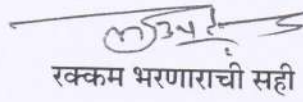 रक्कम भरणाराची सही